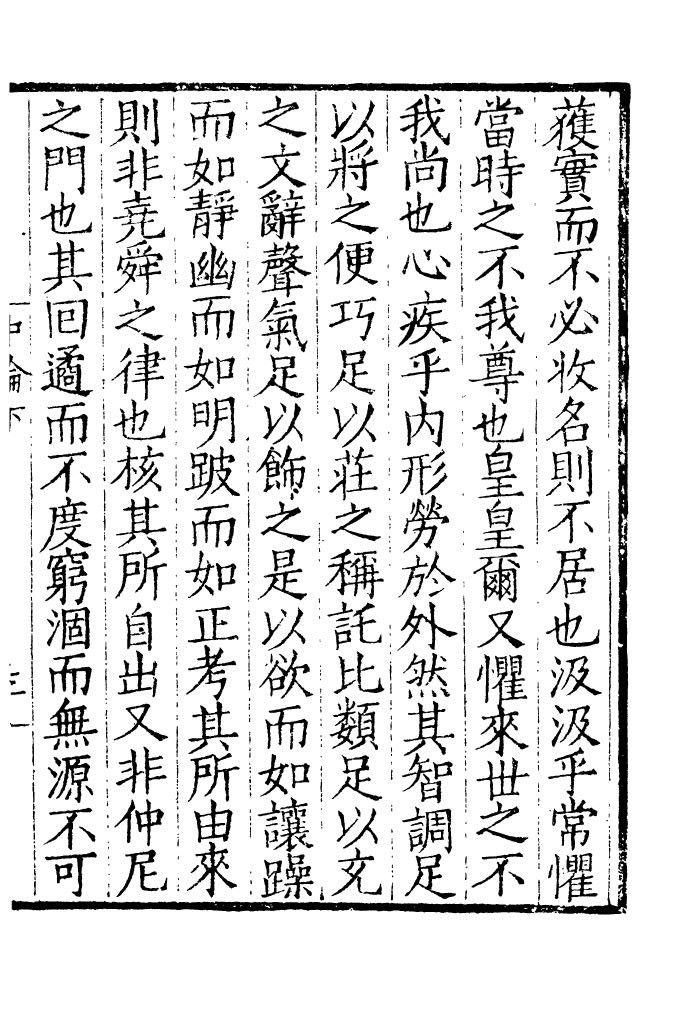 蒦實而不必收名則不居也汲汲乎常懼
當時之不我尊也皇皇爾又懼來世之不
我尚也心疾乎内形勞於外然其智調足
以將之便巧足以莊之稱託比類足以充
之文辭聲氣足以飾之是以欲而如讓躁
而如靜幽而如明跛而如正考其所由來
則非堯舜之律也核其所自出又非仲尼
之門也其回遹而不度窮涸而無源不可
中論下